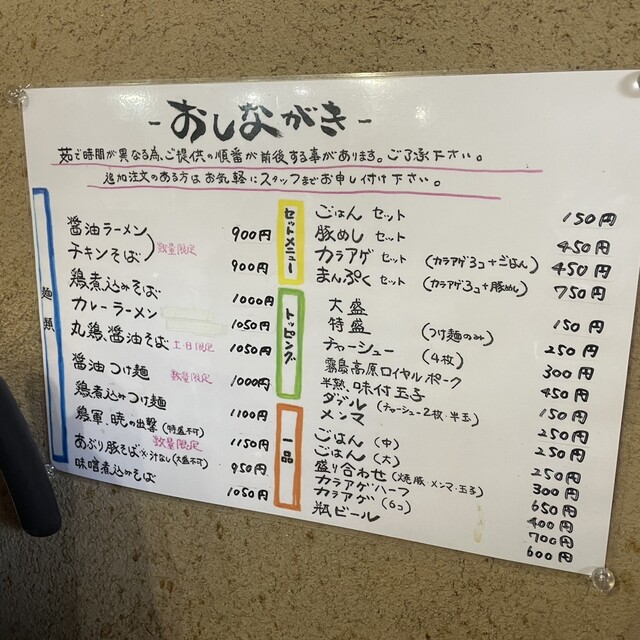 -おしながき-
茹で時間が異なる為、ご提供の順番が前後する事があります。ご了承下さい。
追加注文のある方はお気軽にスタッフまでお申し付け下さい。
麺類
醤油ラーメン 900円
チキンそば 数量限定 900円
鶏煮込みそば 1000円
カレーラーメン 1050円
丸鶏、醤油そば 土・日限定 1050円
醤油つけ麺 数量限定 1000円
鶏煮込みつけ麺 1100円
鶏軍、暁の出撃 (特盛不可) 数量限定 1150円
あぶり豚そば ※汁なし(大盛不可) 950円
味噌煮込みそば 1050円
セットメニュー
ごはん セット 150円
豚めし セット 450円
カラアゲ セット (カラアゲ3コ+ごはん) 450円
まんぷく セット (カラアゲ3コ+豚めし) 750円
トッピング
大盛 150円
特盛 (つけ麺のみ) 250円
チャーシュー (4枚) 300円
霧島高原ロイヤルポーク 450円
半熟、味付玉子 150円
ダブル (チャーシュー2枚・半玉) 250円
メンマ 250円
一品
ごはん (中) 250円
ごはん (大) 300円
盛り合わせ (焼豚・メンマ・玉子) 650円
カラアゲハーフ 400円
カラアゲ (6コ) 700円
瓶ビール 600円